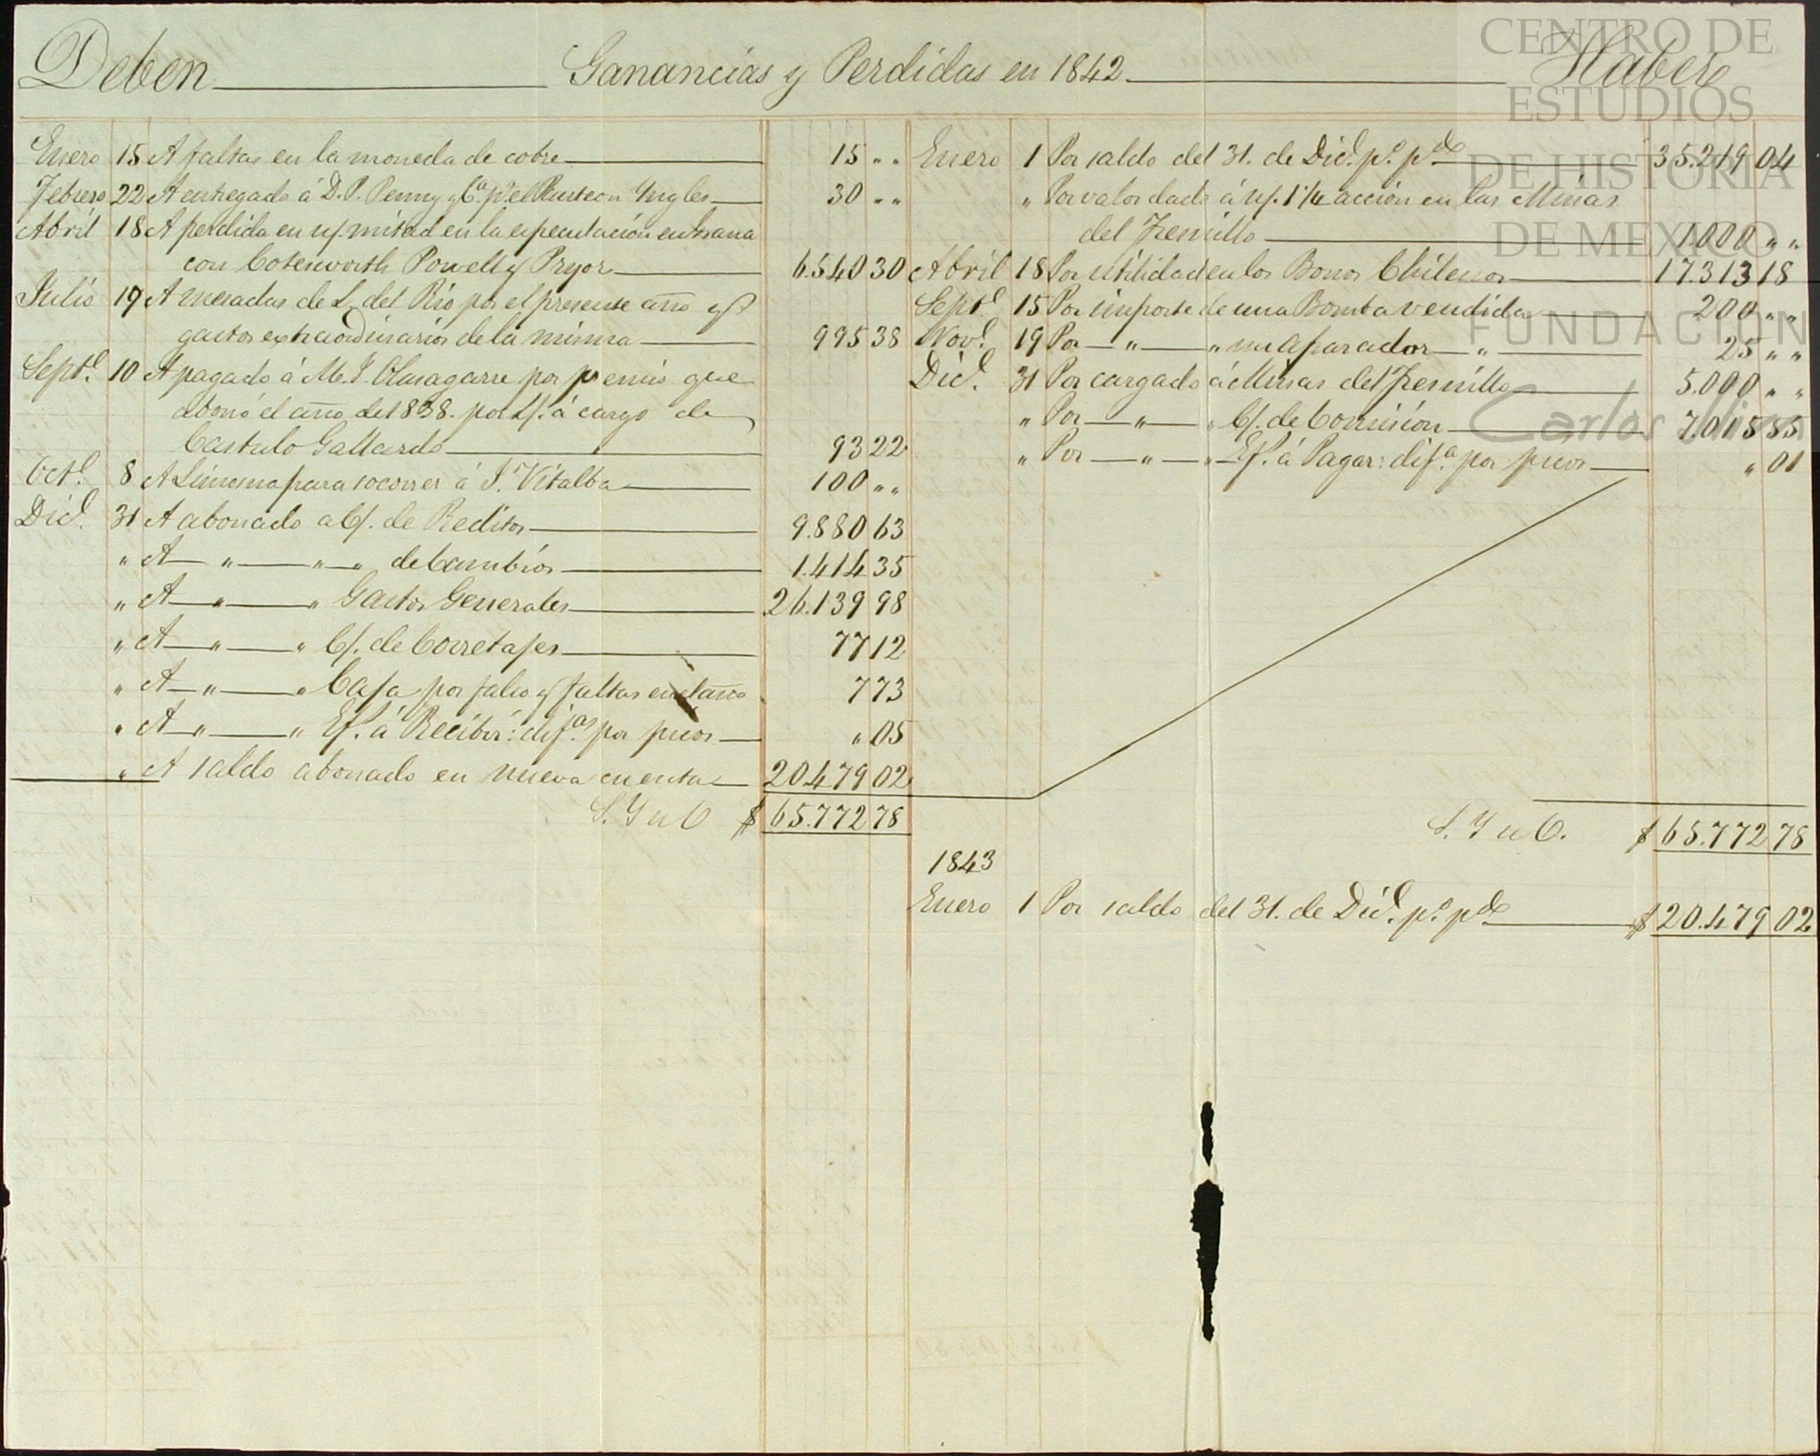 Deben Ganancias y Perdidas en 1842. Haber
Enero 15 A faltas en la moneda de cobre 15 „ „
Febrero 22 A entregado á D. P. Penny y Cª. pª. el Panteon Yngles 30 „ „
Abril 18 A perdida en n/. mitad en la especulacion en Grana
con Cotesworth Powell y Pryor 6.540 30
Julio 19 A mesadas de L. del Rio por el presente año y
gastos extraordinarios de la misma 995 38
Septe. 10 A pagado á M. J. Olasagarre por premio que
abonó el año de 1838. por L/. á cargo de
Castulo Gallardo 93 22
Octe. 8 A Limosna para socorrer á J. Vitalba 100 „ „
Dice. 31 A abonado a C/. de Reditos 9.880 63
„ A „ „ „ de Cambios 1.414 35
„ A „ „ Gastos Generales 26.139 98
„ A „ „ C/. de Corretajes 77 12
„ A „ „ Caja por falso y faltas en el año 7 73
„ A „ „ Ef. á Recibir: difas. por picos „ 05
„ A saldo abonado en nueva cuenta 20.479 02
S. Y u O $ 65.772 78
Enero 1 Por saldo del 31. de Dice. po. pdo 35.219 04
„ Por valor dado á n/. 1 1/4 accion en las Minas
del Fresnillo 1.000 „ „
Abril 18 Por utilidad en los Bonos Chilenos 17.313 18
Septe. 15 Por importe de una Bomba vendida 200 „ „
Nove. 19 Por „ „ un aparador „ 25 „ „
Dice. 31 Por cargado á Minas del Fresnillo 5.000 „ „
„ Por „ „ C/. de Comision 7.015 55
„ Por „ „ Ef. á Pagar: difa. por picos „ 01
S. Y u O. $ 65.772 78
1843
Enero 1 Por saldo del 31. de Dice. po. pdo $ 20.479 02
CENTRO DE
ESTUDIOS
DE HISTORIA
DE MEXICO
FUNDACION
Carlos Slim